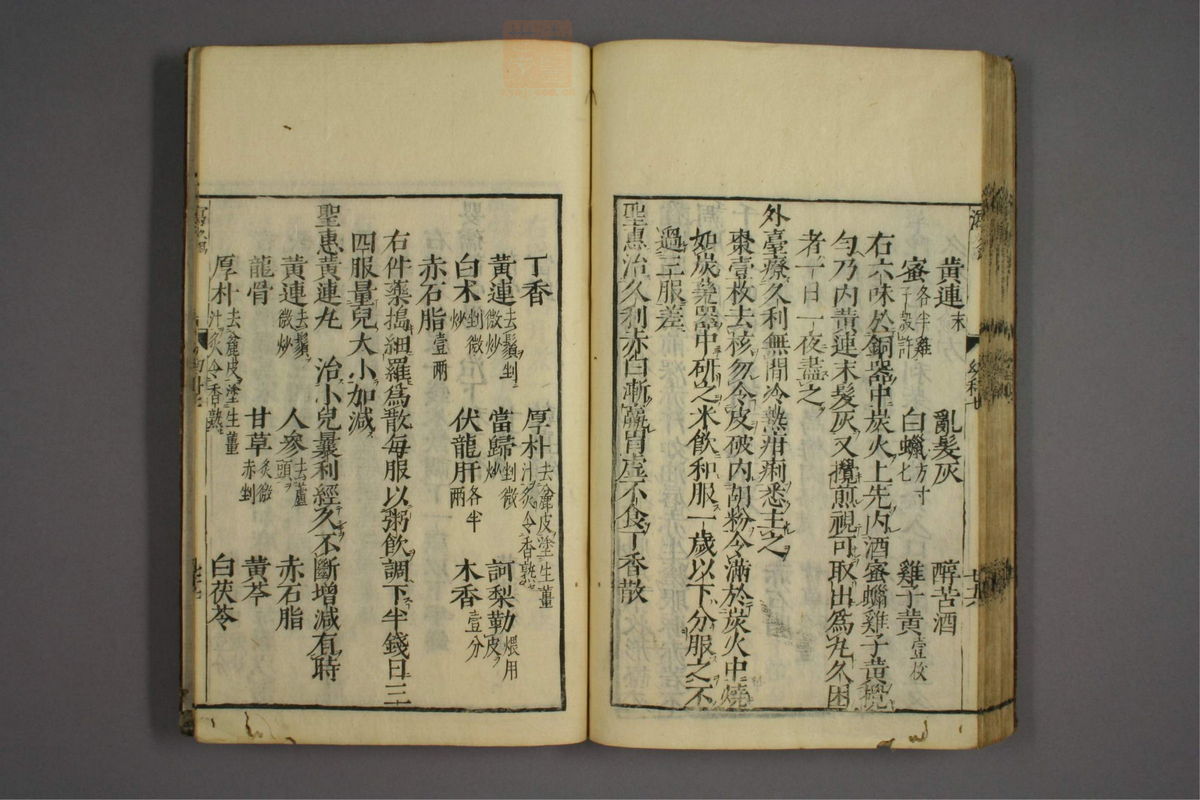 黄連末 亂髮灰 醇苦酒
蜜各半雞子殼許 白蠟方寸匕 雞子黄壹枚
右六味於銅器中炭火上先内酒蜜蠟雞子黄攪
勻乃内黄連末髮灰又攪煎視可取出為丸久困
者十日一夜盡之
外臺療久利無問冷熱疳痢悉主之
棗壹枚去核勿令皮破内胡粉令滿於炭火中燒
如炭甆器中研之米飲和服一歲以下分服之不
過三服差
聖惠治久利赤白漸羸胃虛不食丁香散
丁香 厚朴去麄皮塗生薑汁炙令香熟
黄連去鬚剉微炒 當歸剉微炒 訶梨勒煨用皮
白术剉微炒 伏龍肝各半兩 木香壹分
赤石脂壹兩
右件藥搗細羅為散每服以粥飲調下半錢日三
四服量兒大小加減
聖惠黄連丸 治小兒暴利經久不斷增減有時
黄連去鬚微炒 人參去蘆頭 赤石脂
龍骨 甘草炙微赤剉 黄芩
厚朴去麄皮塗生薑汁炙令香熟 白茯苓